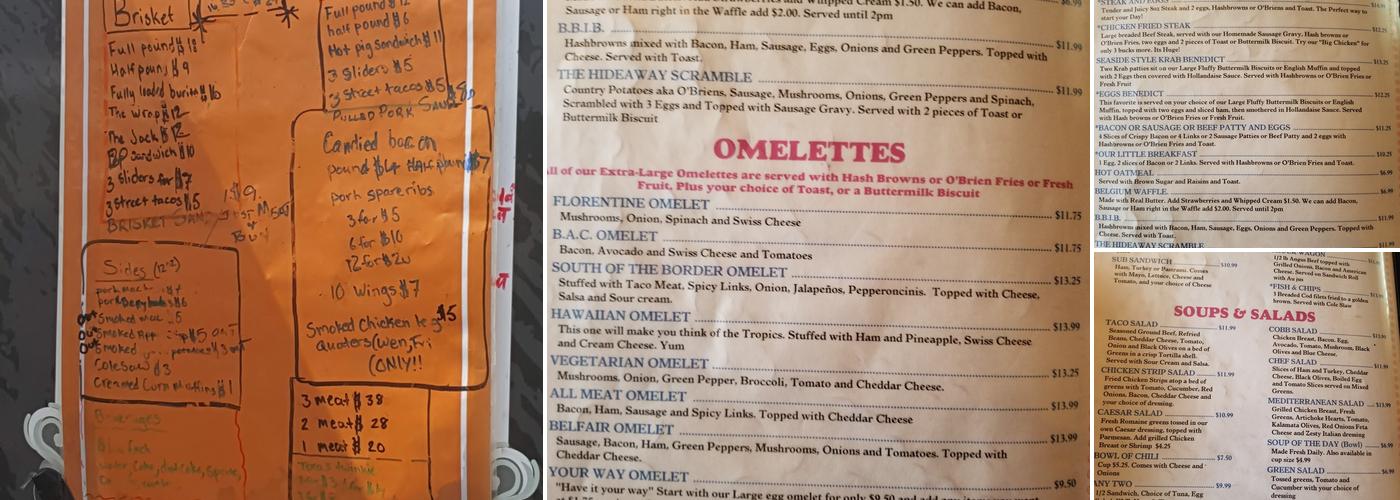 Brisket
Full pound $18
Half pound $9
Fully loaded burrito $16
The Wrap $12
The Jack $12
Sandwich $10
3 sliders for $7
3 street tacos $5
BRISKET
Sides
Smoked mac
Smoked
Smoked
Coleslaw $3
Creamed Corn Muffins $1
Beverages
Full pound $12
half pound $6
Hot pig sandwich $11
3 sliders $5
3 street tacos $5
PULLED PORK
Candied bacon
pound $14 Half pound $7
pork spare ribs
3 for $5
6 for $10
12 for $20
10 wings $7
Smoked Chicken leg $5
quaters (Wen, Fri
(ONLY!!
3 meat $38
2 meat $28
1 meat $20
Whipped Cream $1.50. We can add Bacon,
Sausage or Ham right in the Waffle add $2.00. Served until 2pm
B.B.I.B. $11.99
Hashbrowns mixed with Bacon, Ham, Sausage, Eggs, Onions and Green Peppers. Topped with
Cheese. Served with Toast.
THE HIDEAWAY SCRAMBLE $11.99
Country Potatoes aka O'Briens, Sausage, Mushrooms, Onions, Green Peppers and Spinach,
Scrambled with 3 Eggs and Topped with Sausage Gravy. Served with 2 pieces of Toast or
Buttermilk Biscuit
OMELETTES
All of our Extra-Large Omelettes are served with Hash Browns or O'Brien Fries or Fresh
Fruit, Plus your choice of Toast, or a Buttermilk Biscuit
FLORENTINE OMELET $11.75
Mushrooms, Onion, Spinach and Swiss Cheese
B.A.C. OMELET $11.75
Bacon, Avocado and Swiss Cheese and Tomatoes
SOUTH OF THE BORDER OMELET $13.25
Stuffed with Taco Meat, Spicy Links, Onion, Jalapeños, Pepperoncinis. Topped with Cheese,
Salsa and Sour cream.
HAWAIIAN OMELET $13.99
This one will make you think of the Tropics. Stuffed with Ham and Pineapple, Swiss Cheese
and Cream Cheese. Yum
VEGETARIAN OMELET $13.25
Mushrooms, Onion, Green Pepper, Broccoli, Tomato and Cheddar Cheese.
ALL MEAT OMELET $13.99
Bacon, Ham, Sausage and Spicy Links. Topped with Cheddar Cheese
BELFAIR OMELET $13.99
Sausage, Bacon, Ham, Green Peppers, Mushrooms, Onions and Tomatoes. Topped with
Cheddar Cheese.
YOUR WAY OMELET $9.50
"Have it your way" Start with our Large egg omelet for only $9.50 and add any
*STEAK AND EGGS
Tender and Juicy 8oz Steak and 2 eggs, Hashbrowns or O'Briens and Toast. The Perfect way to
start your Day!
*CHICKEN FRIED STEAK $12.25
Large breaded Beef Steak, served with our Homemade Sausage Gravy, Hash browns or
O'Brien Fries, two eggs and 2 pieces of Toast or Buttermilk Biscuit. Try our "Big Chicken" for
only 3 bucks more. Its Huge!
SEASIDE STYLE KRAB BENEDICT $13.25
Two Krab patties sit on our Large Fluffy Buttermilk Biscuits or English Muffin and topped
with 2 Eggs then covered with Hollandaise Sauce. Served with Hashbrowns or O'Brien Fries or
Fresh Fruit
*EGGS BENEDICT $12.25
This favorite is served on your choice of our Large Fluffy Buttermilk Biscuits or English
Muffin, topped with two eggs and sliced ham, then smothered in Hollandaise Sauce. Served
with Hash browns or O'Brien Fries or Fresh Fruit.
*BACON OR SAUSAGE OR BEEF PATTY AND EGGS $11.25
4 Slices of Crispy Bacon or 4 Links or 2 Sausage Patties or Beef Patty and 2 eggs with
Hashbrowns or O'Brien Fries and Toast.
*OUR LITTLE BREAKFAST $10.25
1 Egg, 2 slices of Bacon or 2 Links. Served with Hashbrowns or O'Brien Fries and Toast.
HOT OATMEAL $6.99
Served with Brown Sugar and Raisins and Toast.
BELGIUM WAFFLE $6.99
Made with Real Butter. Add Strawberries and Whipped Cream $1.50. We can add Bacon,
Sausage or Ham right in the Waffle add $2.00. Served until 2pm
B.B.I.B. $11.99
Hashbrowns mixed with Bacon, Ham, Sausage, Eggs, Onions and Green Peppers. Topped with
Cheese. Served with Toast.
THE HIDEAWAY SCRAMBLE $11.99
SUB SANDWICH $10.99
Ham, Turkey or Pastrami. Comes
with Mayo, Lettuce, Cheese and
Tomato, and your choice of Cheese
1/2 lb Angus Beef topped with
Grilled Onions, Bacon and American
Cheese. Served on Sandwich Roll
with Au jus
*FISH & CHIPS
3 Breaded Cod filets fried to a golden
brown. Served with Cole Slaw
SOUPS & SALADS
TACO SALAD $11.99
Seasoned Ground Beef, Refried
Beans, Cheddar Cheese, Tomato,
Onion and Black Olives on a bed of
Greens in a crisp Tortilla shell.
Served with Sour Cream and Salsa.
CHICKEN STRIP SALAD $11.99
Fried Chicken Strips atop a bed of
greens with Tomato, Cucumber, Red
Onions, Bacon, Cheddar Cheese and
your choice of dressing.
CAESAR SALAD $10.99
Fresh Romaine greens tossed in our
own Caesar dressing, topped with
Parmesan. Add grilled Chicken
Breast or Shrimp $4.25
BOWL OF CHILI $7.50
Cup $5.25. Comes with Cheese and
Onions
ANY TWO $9.99
1/2 Sandwich, Choice of Tuna, Egg
COBB SALAD $13.99
Chicken Breast, Bacon, Egg,
Avocado, Tomato, Mushroom, Black
Olives and Blue Cheese.
CHEF SALAD
Slices of Ham and Turkey, Cheddar
Cheese, Black Olives, Boiled Egg
and Tomato Slices served on Mixed
Greens.
MEDITERRANEAN SALAD $13.99
Grilled Chicken Breast, Fresh
Greens, Artichoke Hearts, Tomato,
Kalamata Olives, Red Onions Feta
Cheese and Zesty Italian dressing
SOUP OF THE DAY (Bowl) $6.99
Made Fresh Daily. Also available in
cup size $4.99
GREEN SALAD $6.99
Tossed greens, Tomato and
Cucumber with your choice of
dressing